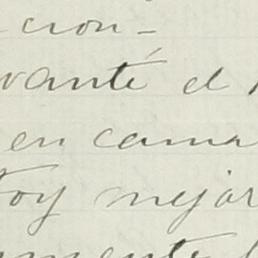 cion-
vanté el
en cama
toy mejor
mente